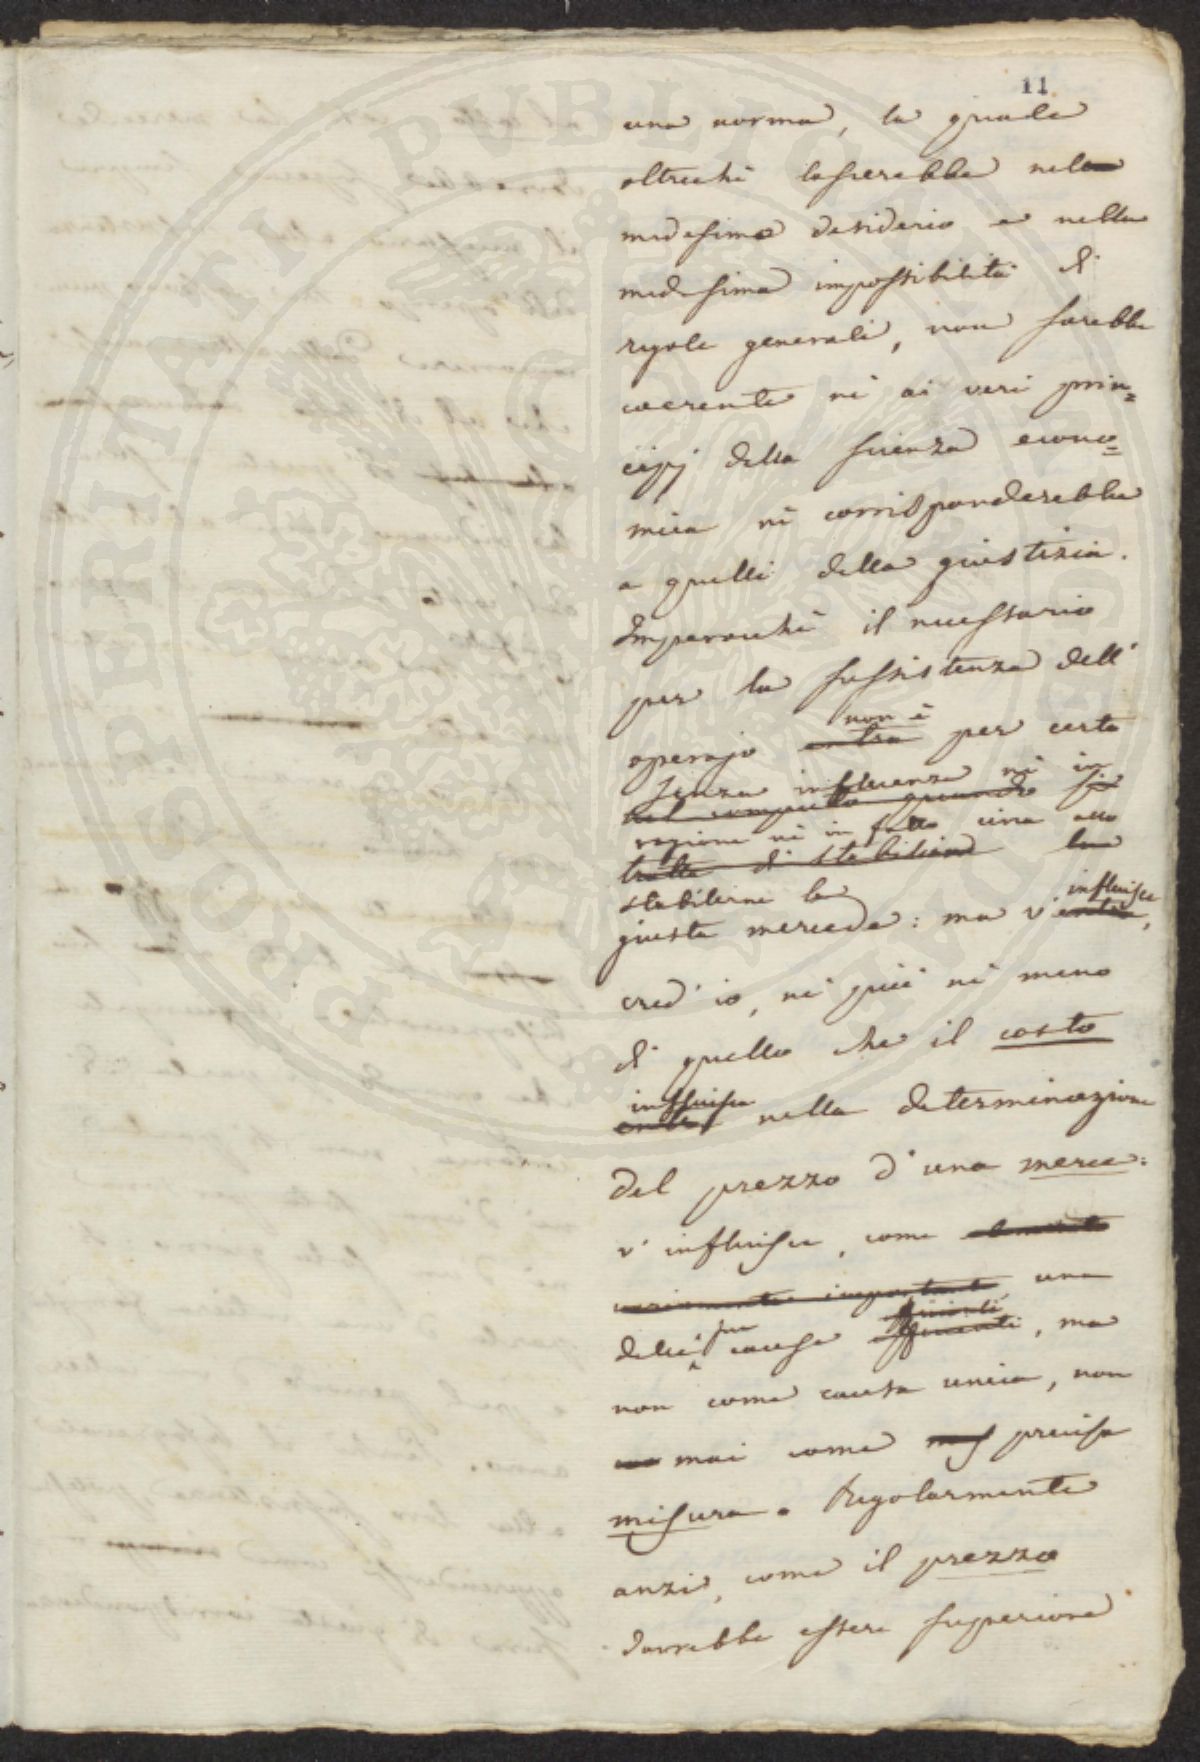 11
una norma, la quale
oltrechè lascierebbe nel
medesimo desiderio e nella
medesima impossibilità di
regole generali, non sarebbe
coerente nè ai veri prin=
cipj della scienza econo=
mica nè corrisponderebbe
a quelli della giustizia.
Imperocchè il necessario
per la sussistenza dell'
non è
operajo entra per certo
senza influenza nè in
nel computo quando si
ragione nè in fatto circa allo
tratta di stabilire la
stabilirne la
influisce
giusta mercede: ma v'entra,
cred' io, nè più nè meno
di quello che il costo
influisce
entra nella determinazione
del prezzo d'una merce:
v' influisce, come
importante una
sue
delle cause efficienti, ma
non come causa unica, non
mai come precisa
misura. Regolarmente
anzi, come il prezzo
dovrebbe essere superiore
PROSPERITATI PUBLICAE